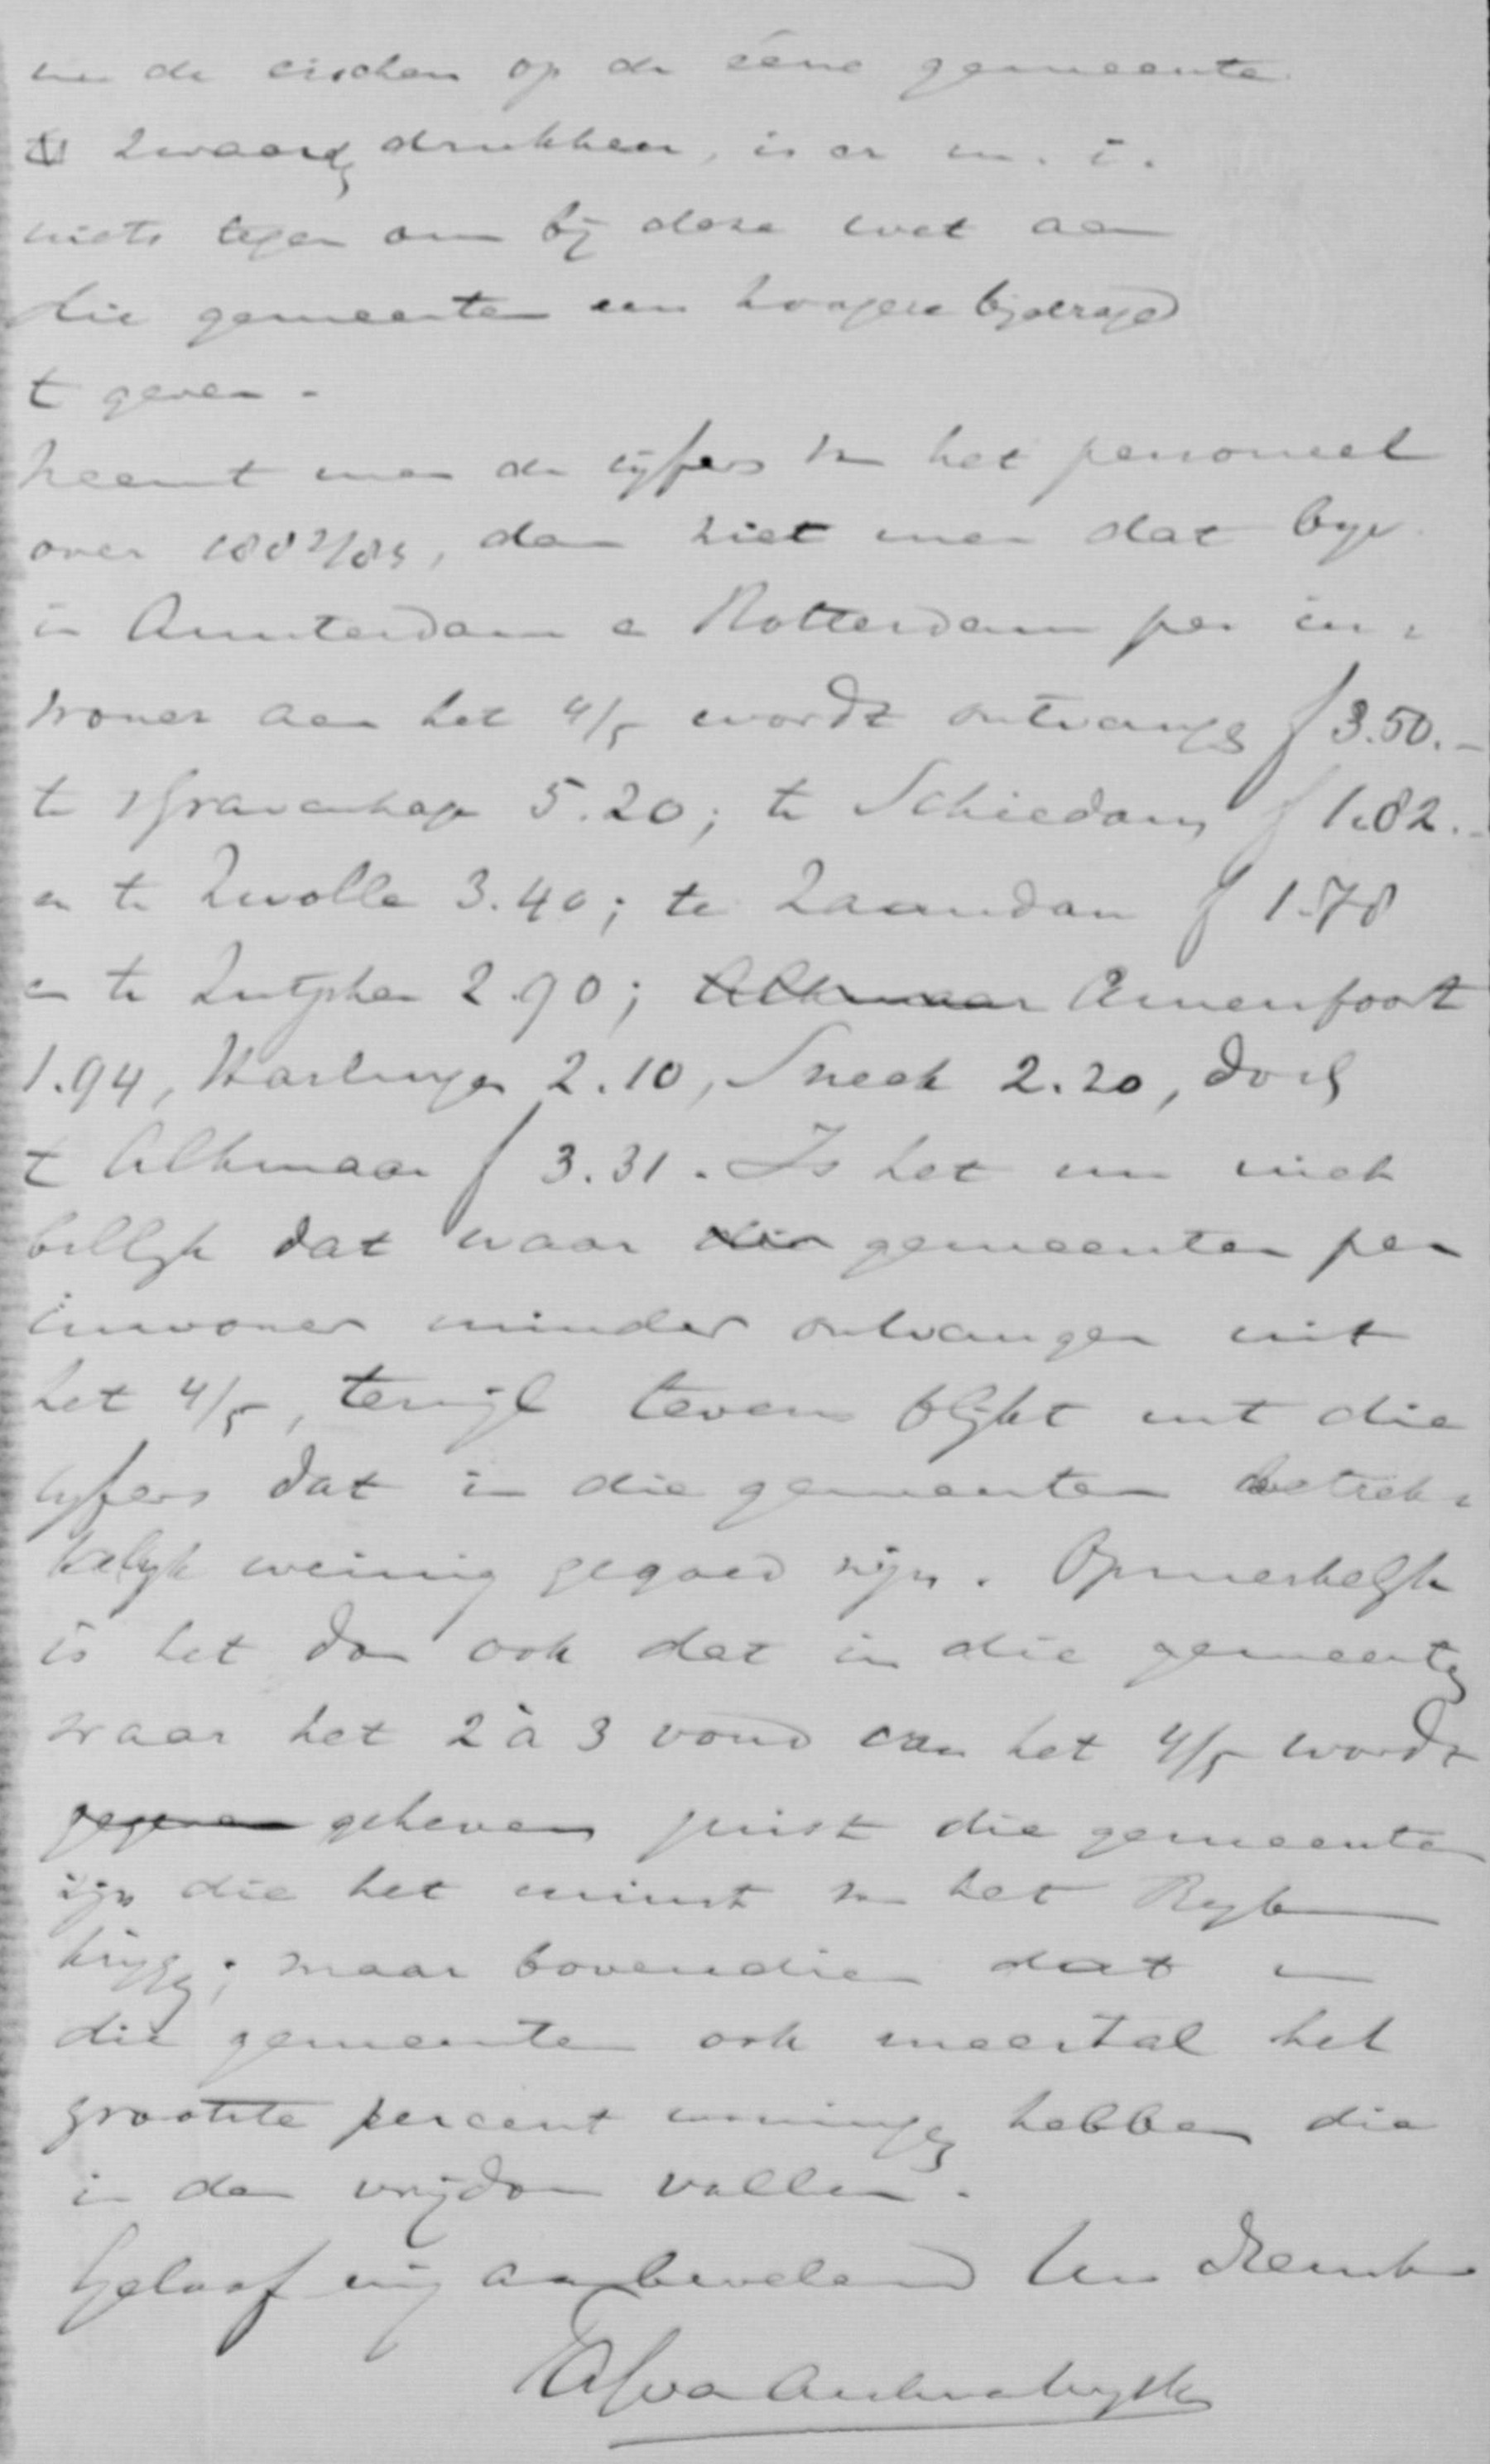 nu de eischen op de ééne gemeente
zwaar drukken, is er m. i.
niets tegen om bij deze wet aan
die gemeenten een hoogere bijdrage
te geven.
Neemt men de cijfers van het personeel
over 1882/83, dan ziet men dat bijv.
in Amsterdam en Rotterdam per in=
woner aan het 4/5 wordt ontvangen ƒ 3.50.-
te 'sGravenhage 5.20; te Schiedam ƒ 1.82.-
en te Zwolle 3.40; te Zaandam ƒ 1.78
en te Zutphen 2.90; Alkmaar Amersfoort
1.94, Harlingen 2.10, Sneek 2.20, doch
te Alkmaar ƒ 3.31. Is het nu niet
billijk dat waar die gemeenten per
inwoner minder ontvangen uit
het 4/5, terwijl tevens blijkt uit die
cijfers dat in die gemeenten betrek=
kelijk weinig gegoed zijn. Opmerkelijk
is het dan ook dat in die gemeenten
waar het 2 à 3 voud van het 4/5 wordt
gegeven geheven juist die gemeenten
zijn die het minst van het Rijk
krijgen; maar bovendien dat in
die gemeenten ook meestal het
grootste percent woningen hebben die
in den vrijdom vallen.
Geloof mij aanbevelend Uw dienstw